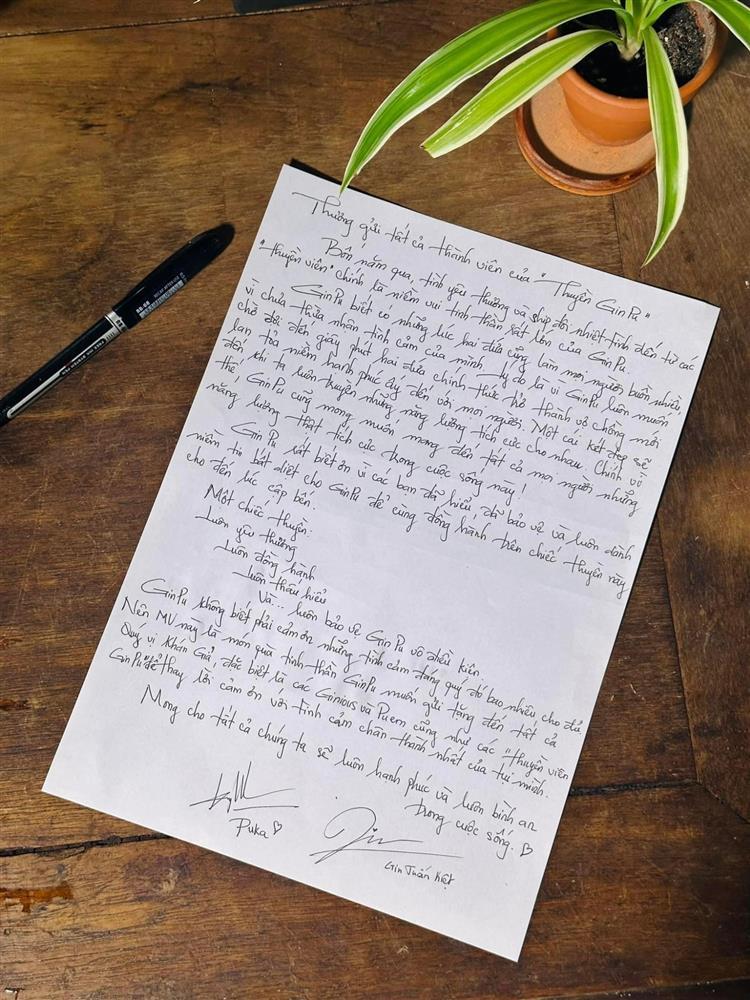 Thương gửi tất cả thành viên của "Thuyền GinPu"
Bốn năm qua, tình yêu thương và ship đôi nhiệt tình đến từ các
"thuyền viên" chính là niềm vui tinh thần rất lớn của GinPu.
GinPu biết có những lúc hai đứa cũng làm mọi người buồn nhiều,
vì chưa thừa nhận tình cảm của mình. Lý do là vì GinPu luôn muốn
chờ đợi đến giây phút hai đứa chính thức trở thành vợ chồng mới
lan tỏa niềm hạnh phúc ấy đến với mọi người. Một cái kết đẹp sẽ
đến khi ta luôn truyền những năng lượng tích cực cho nhau. Chính vì
thế, GinPu cũng mong muốn mang đến tất cả mọi người những
năng lượng thật tích cực trong cuộc sống này!
GinPu rất biết ơn vì các bạn đã hiểu, đã bảo vệ và luôn dành
niềm tin bất diệt cho GinPu để cùng đồng hành trên chiếc thuyền này
cho đến lúc cập bến.
Một chiếc thuyền:
Luôn yêu thương
Luôn đồng hành
Luôn thấu hiểu
Và... luôn bảo vệ GinPu vô điều kiện.
GinPu không biết phải cảm ơn những tình cảm đáng quý đó bao nhiêu cho đủ.
Nên MV này là món quà tinh thần GinPu muốn gửi tặng đến tất cả
Quý vị Khán Giả, đặc biệt là các Ginious và Puem cũng như các "thuyền viên
GinPu" để thay lời cảm ơn với tình cảm chân thành nhất của tụi mình.
Mong cho tất cả chúng ta sẽ luôn hạnh phúc và luôn bình an
trong cuộc sống. ♡
Puka ♡
Gin Tuấn Kiệt